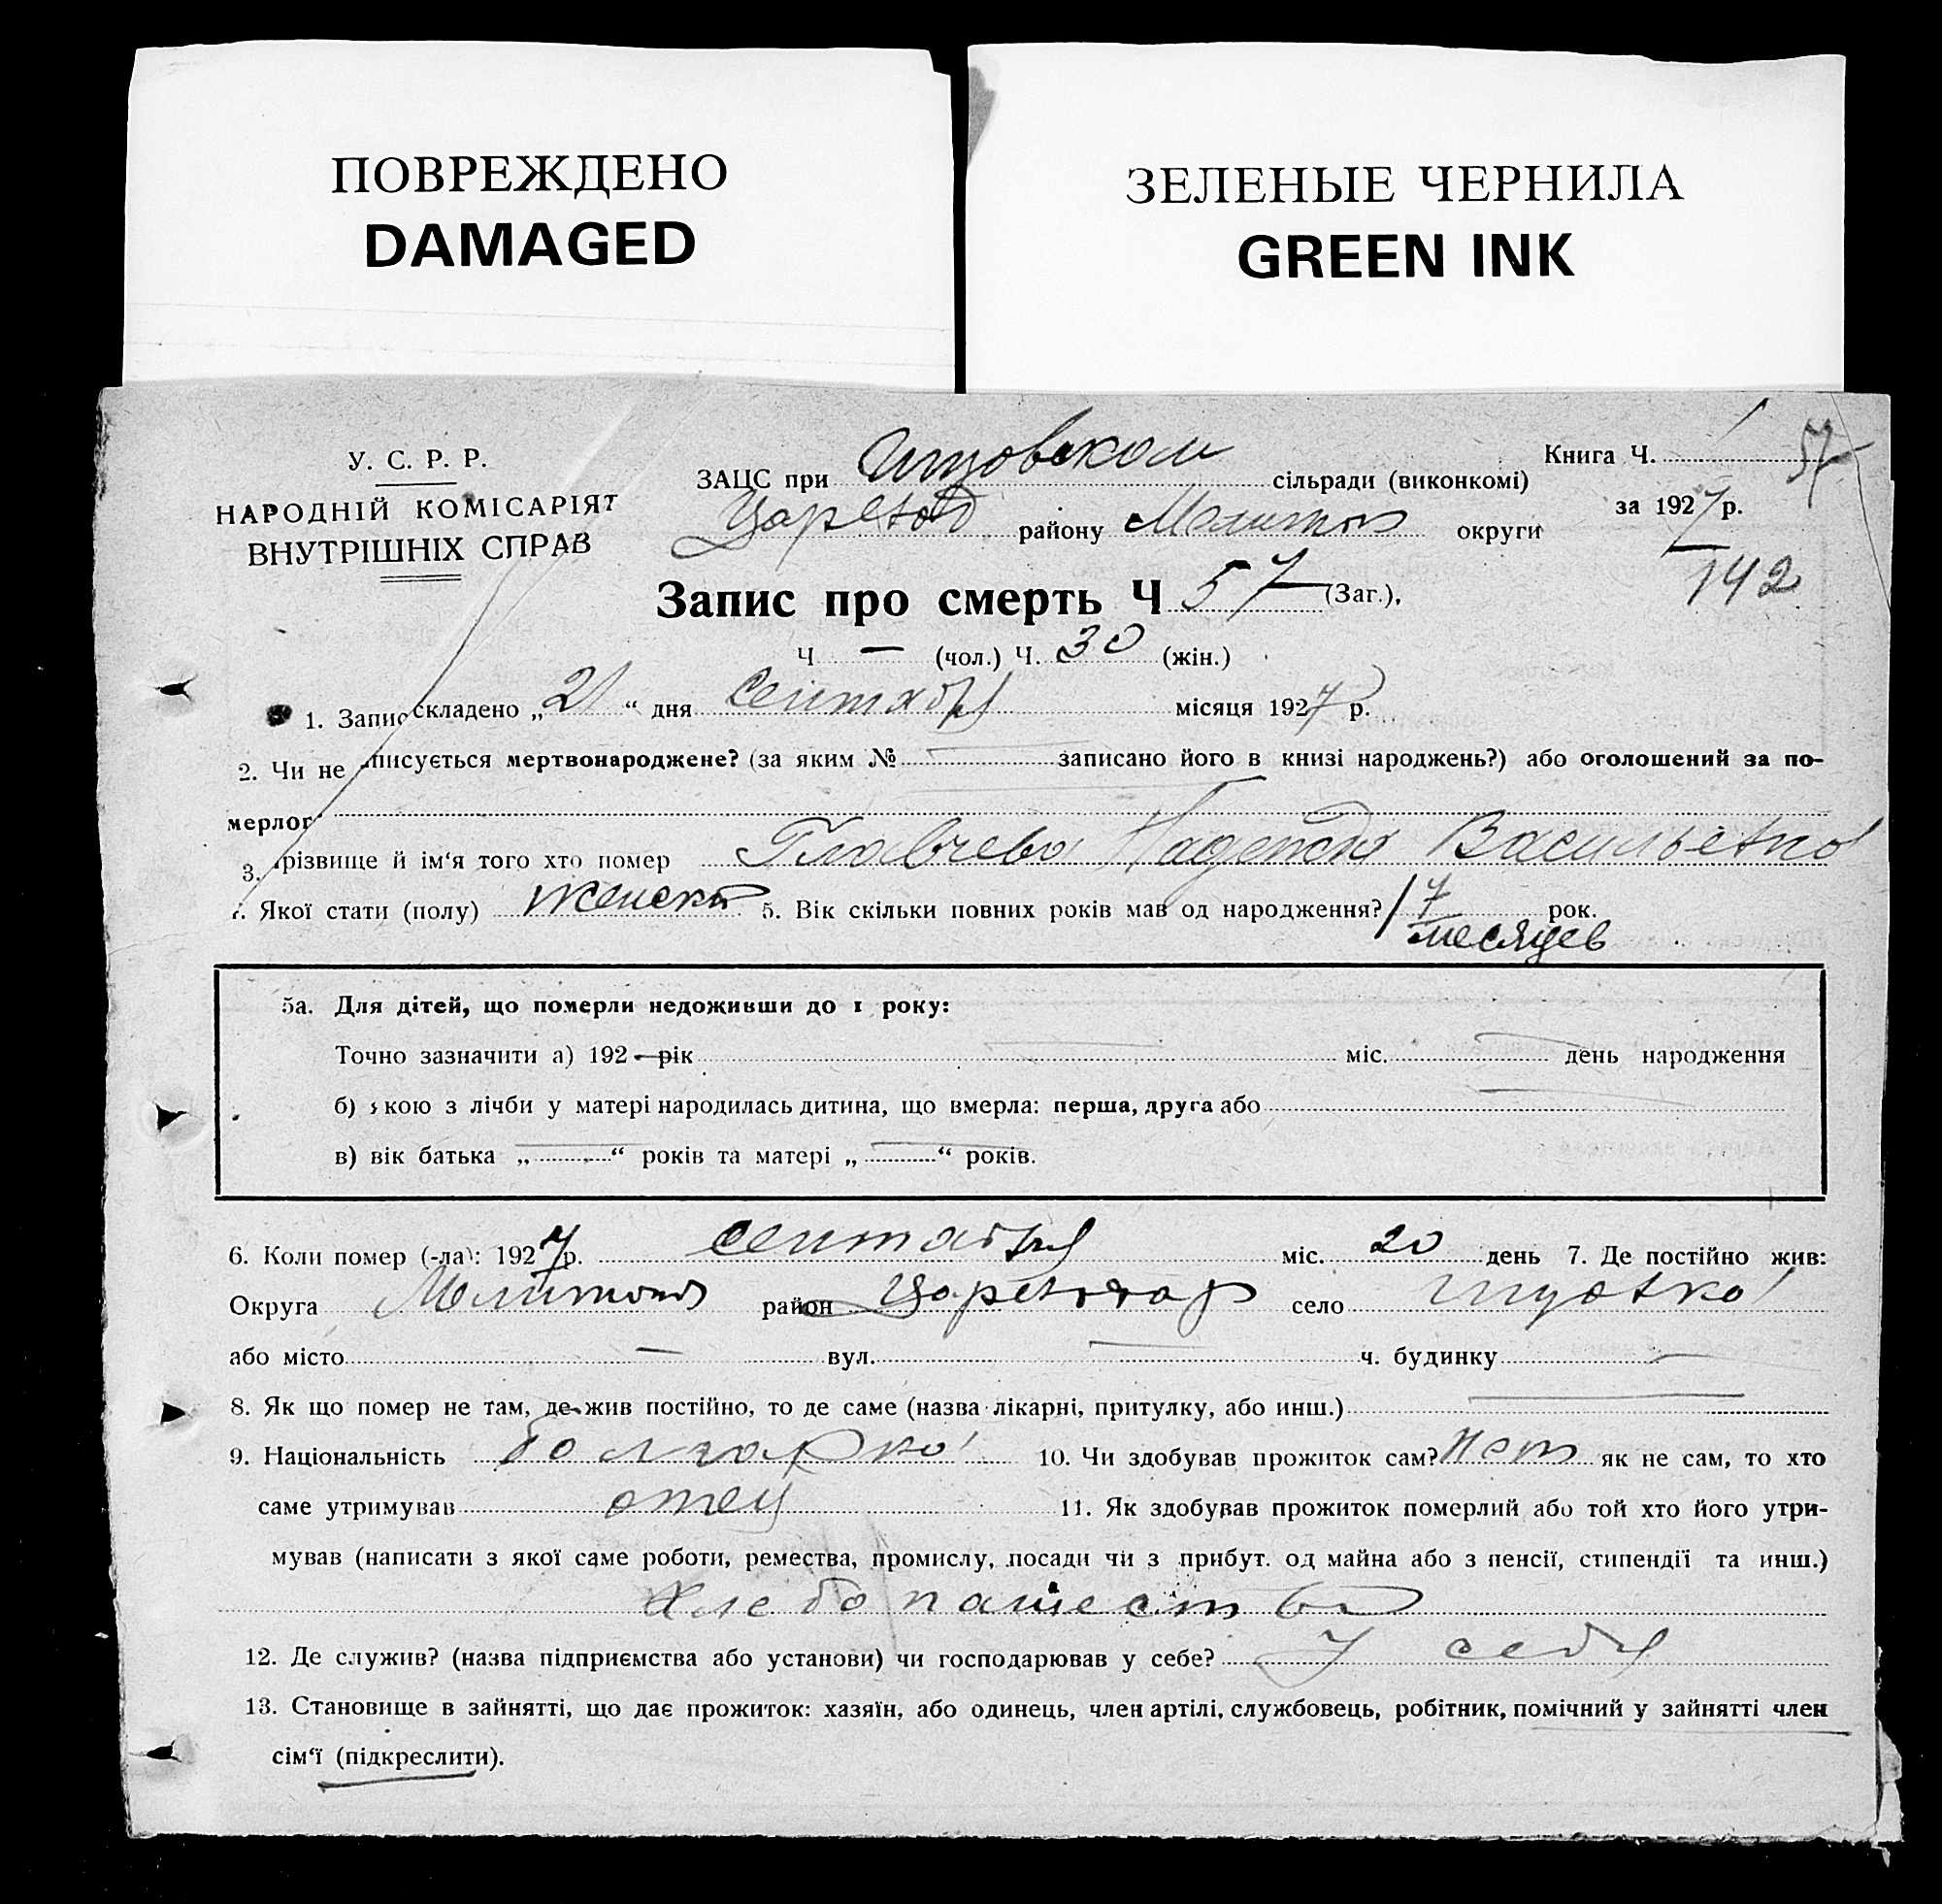 ПОВРЕЖДЕНО
DAMAGED
ЗЕЛЕНЫЕ ЧЕРНИЛА
GREEN INK
У. С. Р. Р.
НАРОДНІЙ КОМІСАРІЯТ
ВНУТРІШНІХ СПРАВ
Книга Ч. 57
ЗАЦС при сільради (виконкомі)
за 1927 р.
району Мелитоп округи
142
Запис про смерть Ч 57 (Заг.),
Ч — (чол.) Ч. 30 (жін.)
1. Запис складено „21“ дня сентября місяця 1927 р.
2. Чи не писується мертвонароджене? (за яким № записано його в книзі народжень?) або оголошений за по-
мерлог
3. різвище й ім‘я того хто помер Главчева Надежда Васильевна
Якої стати (полу) женск 5. Вік скільки повних років мав од народження? 1/7 рок.
месяцев
5а. Для дітей, що померли недоживши до 1 року:
Точно зазначити а) 192 рік міс. день народження
б) якою з лічби у матері народилась дитина, що вмерла: перша, друга або
в) вік батька „ “ років та матері „ “ років.
6. Коли помер (-ла): 1927 р. сентября міс. 20 день 7. Де постійно жив:
Округа Мелитоп район село
або місто — вул. — ч. будинку —
8. Як що помер не там, де жив постійно, то де саме (назва лікарні, притулку, або инш.) —
9. Національність болгарка 10. Чи здобував прожиток сам? Нет як не сам, то хто
саме утримував отец 11. Як здобував прожиток померлий або той хто його утри-
мував (написати з якої саме роботи, ремества, промислу, посади чи з прибут. од майна або з пенсії, стипендії та инш.)
Хлебопашество
12. Де служив? (назва підприємства або установи) чи господарював у себе? У себя
13. Становище в зайнятті, що дає прожиток: хазяїн, або одинець, член артілі, службовець, робітник, помічний у зайнятті член
сім‘ї (підкреслити).